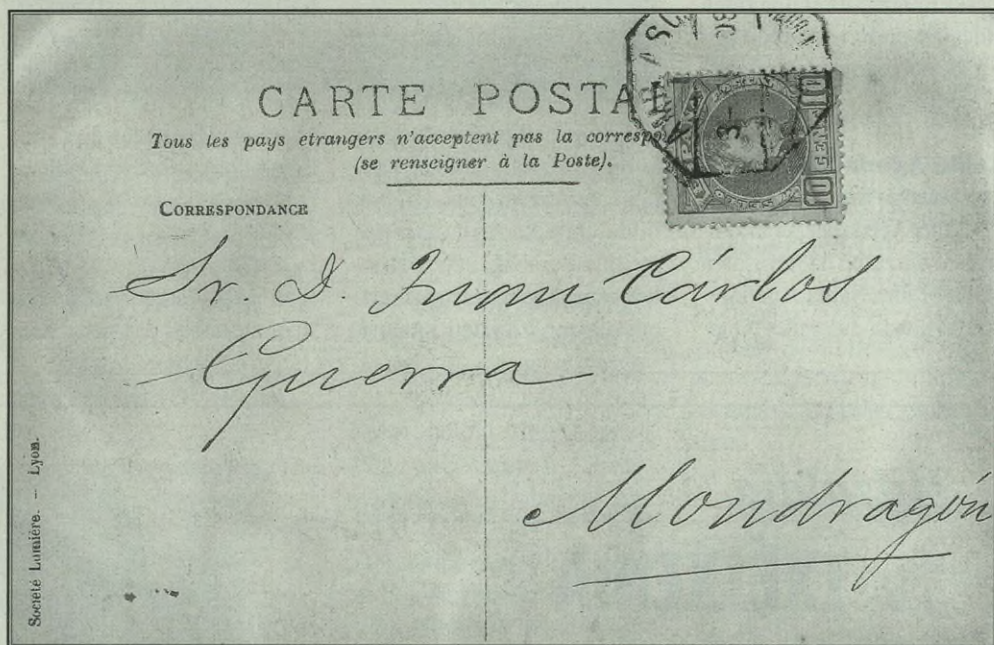 CARTE POSTAL
Tous les pays etrangers n'acceptent pas la correspo
(se renseigner à la Poste).
CORRESPONDANCE
10
10
Sr. D. Juan Cárlos
Guerra
Mondragón
Societé Lumière. - Lyon.